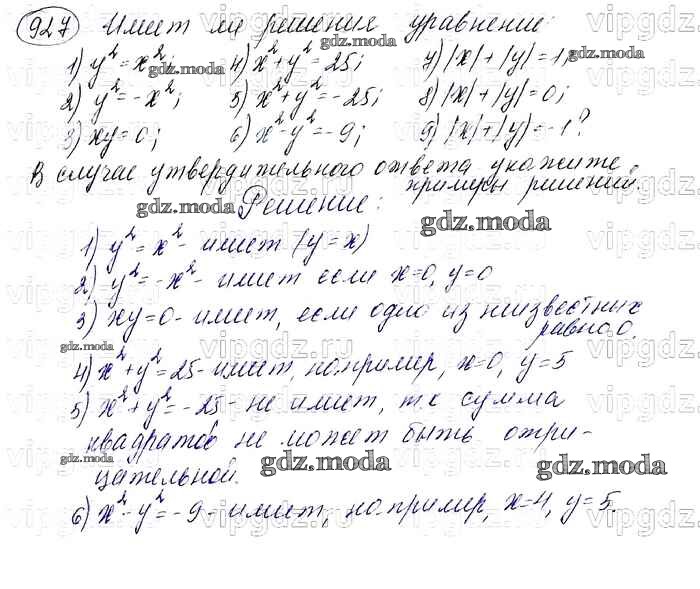 927 Имеет ли решения уравнение:
1) y² = x²; 4) x² + y² = 25; 7) |x| + |y| = 1;
2) y² = -x²; 5) x² + y² = -25; 8) |x| + |y| = 0;
3) xy = 0; 6) x² - y² = -9; 9) |x| + |y| = -1?
В случае утвердительного ответа укажите
примеры решений.
Решение:
1) y² = x² - имеет (y = x)
2) y² = -x² - имеет если x=0, y=0
3) xy=0 - имеет, если одно из неизвестных
равно 0.
4) x² + y² = 25 - имеет, например, x=0, y=5
5) x² + y² = -25 - не имеет, т.к сумма
квадратов не может быть отри-
цательной.
6) x² - y² = -9 - имеет, например, x=4, y=5.
gdz.moda
vipgdz.ru